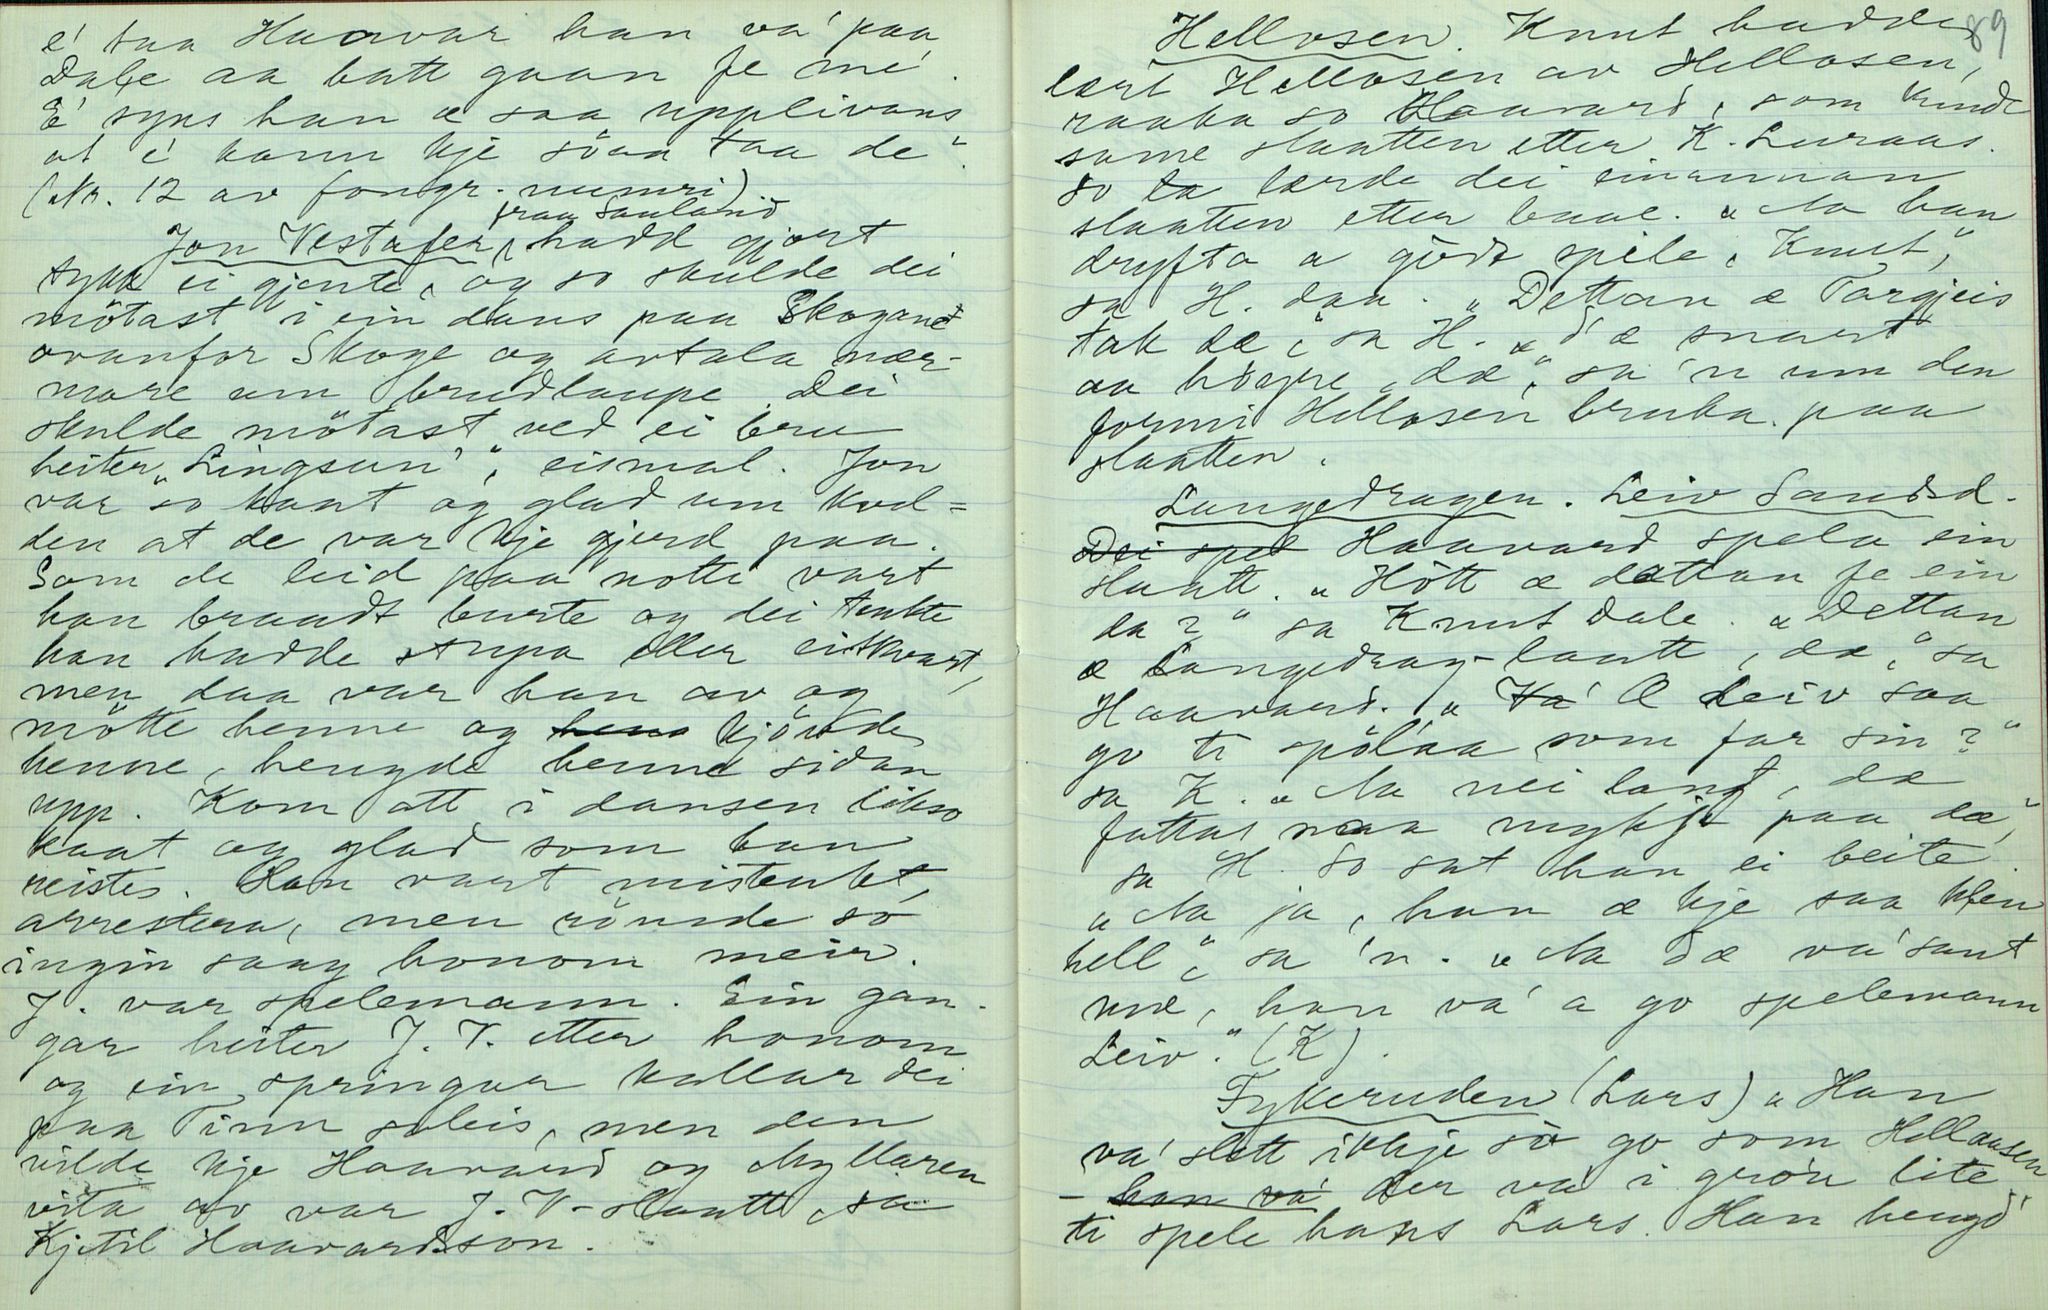 e' taa Haavar han va' paa
Dale aa batt gaan fe me'.
E' syns han æ saa upplivans
at e' kann kje söva taa de".
(Nr. 12 av fongr. numri).
Jon Vestafer, fraa Sauland hadd gjort
tykk ei gjente, og so skulde dei
mötast i ein dans paa Skogane
ovanfor Skoge og avtala nær-
mare um brudlaupe. Dei
skulde mötast ved ei bru
heiter "Lingsun'", eismal. Jon
var so kaat og glad um kvel=
den at de var kje gjerd paa.
Som de leid paa notti vart
han braadt burte og dei tenkte
han hadde stupa eller eitkvart,
men daa var han av og
mötte henne og kjövde
henne, hengde henne sidan
upp. Kom att i dansen likso
kaat og glad som han
reiste. Han vart mistenkt,
arrestera, men römde so
ingin saag honom meir.
J. var spelemann. Ein gan-
gar heiter J. V. etter honom
og ein springar kallar dei
paa Tinn soleis, men den
vilde kje Haavard og Myllaren
vita av var J. V-slaatt, sa
Kjetil Haavardsson.
89
Hellosen. Knut hadde
lært Hellosen av Hellosen,
raaka so Haavard, som kunde
same slaatten etter K. Luraas.
so lærde dei einannan
slaatten etter baae. "Na han
dryfta a godt spele, Knut",
sa H. daa. "Dettan æ Targjeis
tak dæ", sa H. "d'æ snart
aa högre, dæ", sa 'n um den
formi Hellosen bruka paa
slaatten.
Langedragen. Leiv Sandsd.
Dei spel Haavard spela ein
slaatt. "Hött æ dettan fe ein
da?" sa Knut Dale. "Dettan
æ Langedrag-laatt, dæ," sa
Haavard. "Va' Æ Leiv saa
go ti spölaa som far sin?"
sa K. "Na nei langt, dæ
fattas naa mykji paa dæ",
sa H. So sat han ei beite.
"Na ja, han æ kje saa klen
hell", sa 'n. "Na dæ va' sant
und, han va' a go spelemann
Leiv." (K).
Fykeruden (Lars) "Han
va' slett ikkje so go som Hellaasen
- han va' der va' i gro'n lite
ti spele hans Lars. Han hengd'